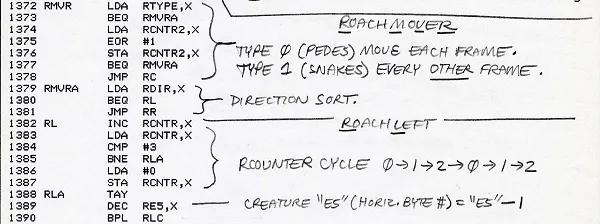 1372 RMVR LDA RTYPE,X
1373 BEQ RMVRA
1374 LDA RCNTR2,X
1375 EOR #1
1376 STA RCNTR2,X
1377 BEQ RMVRA
1378 JMP RC
ROACH MOVER
TYPE 0 (PEDES) MOVE EACH FRAME.
TYPE 1 (SNAKES) EVERY OTHER FRAME.
1379 RMVRA LDA RDIR,X
1380 BEQ RL
1381 JMP RR
DIRECTION SORT.
1382 RL INC RCNTR,X
1383 LDA RCNTR,X
1384 CMP #3
1385 BNE RLA
1386 LDA #0
1387 STA RCNTR,X
ROACH LEFT
RCOUNTER CYCLE 0→1→2→0→1→2
1388 RLA TAY
1389 DEC RE5,X
1390 BPL RLC
CREATURE "E5" (HORIZ. BYTE #) = "E5" - 1